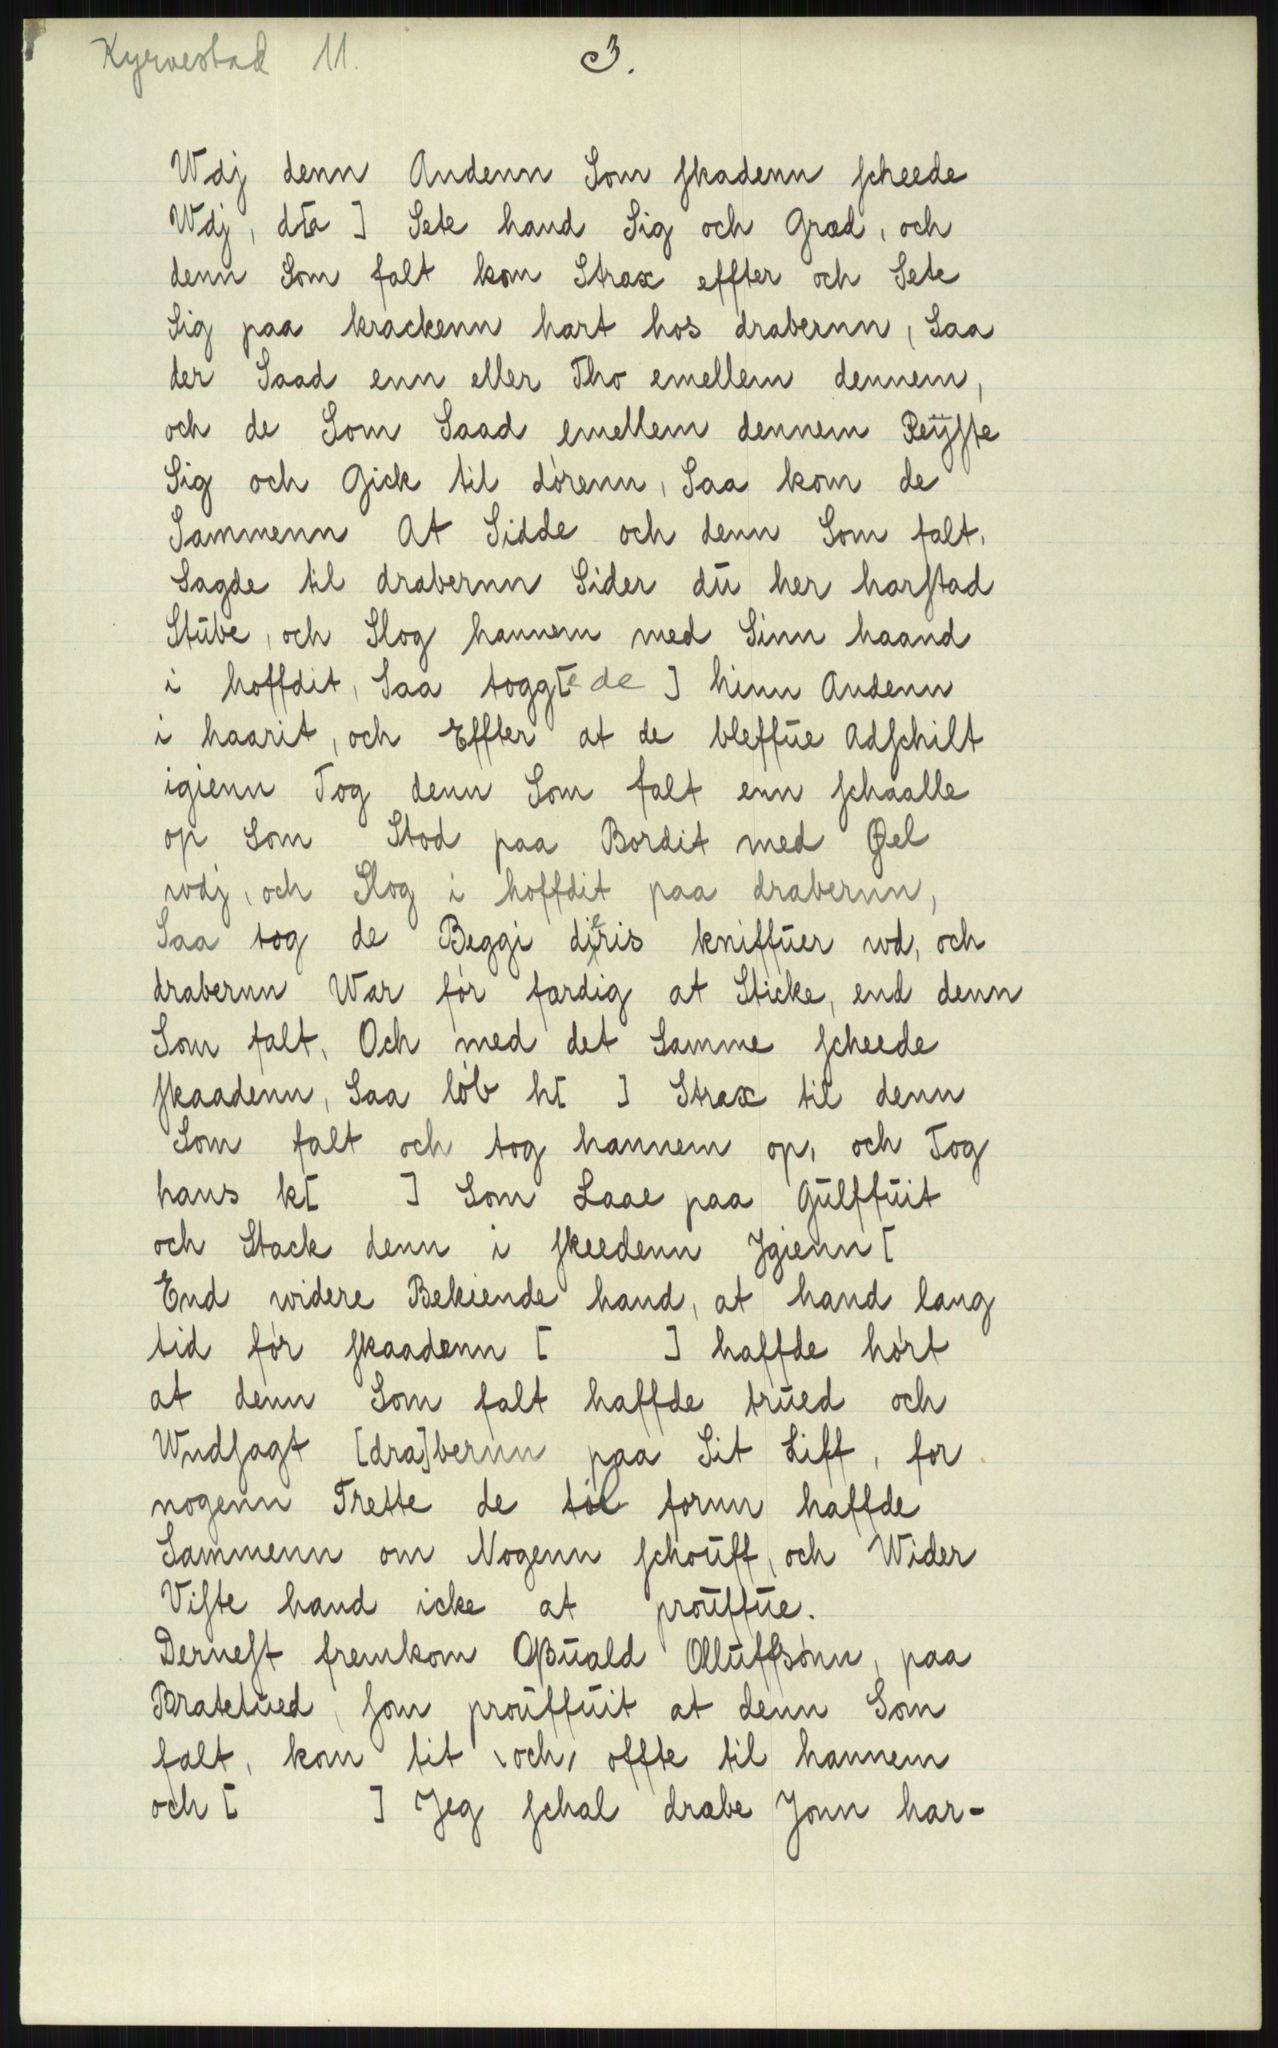 Kyrvestad 11. 3.
Wdj denn Andenn Som skadenn scheede
Wdj, d[a ] Sete hand Sig och Græd, och
denn Som falt kom Strax effter och Sete
Sig paa krackenn hart hos drabernn, Saa
der Saad enn eller Tho emellem dennem,
och de Som Saad emellem dennem Reÿste
Sig och Gick til dörenn, Saa kom de
Sammenn At Sidde och denn Som falt,
Sagde til drabernn Sider dū her harstad
Stūbe, och Slog hannem med Sinn haand
i hoffdit, Saa togg[e de ] hinn Andenn
i haarit, och Effter at de bleffūe Adschilt
igienn Tog denn Som falt enn schaalle
op Som Stod paa Bordit med Øel
wdj, och Slog i hoffdit paa drabernn,
Saa tog de Beggi dieris kniffūer wd, och
drabernn War för færdig at Sticke, end denn
Som falt, Och med det Samme scheede
skaadenn, Saa löb h[ ] Strax til denn
Som falt och tog hannem op, och Tog
hans k[ ] Som Laae paa Gūlffūit
och Stack denn i skeedenn Jgienn [
End widere Bekiende hand, at hand lang
tid för skaadenn [ ] haffde hört
at denn Som falt haffde trūed och
Wndsagt [dra]bernn paa Sit Liff, for
nogenn Trette de til fornn haffde
Sammenn om Nogenn schoūff, och Wider
Viste hand icke at proūffūe.
Dernest fremkom Oßūald Ollūffsönn, paa
Bratetūed, som proūffūit at denn Som
falt, kom tit och offte til hannem
och [ ] Jeg schal dræbe Jonn har-